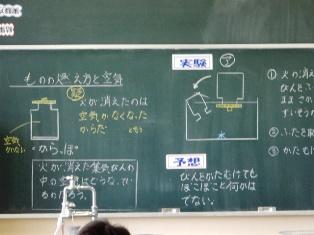 ものの燃え方と空気
火が消えたのは
空気がなくなった
からだ
空気
がない
"からっぽ"
火が消えた集気びんの
中の空気はどうなってい
るのだろう。
実験
ア
水
予想
びんをかたむけても
ぼこぼこと何かは
でない。
① 火の消え
びんをこ
まま さか
すいそう
② ふたを取
③ かたむけ